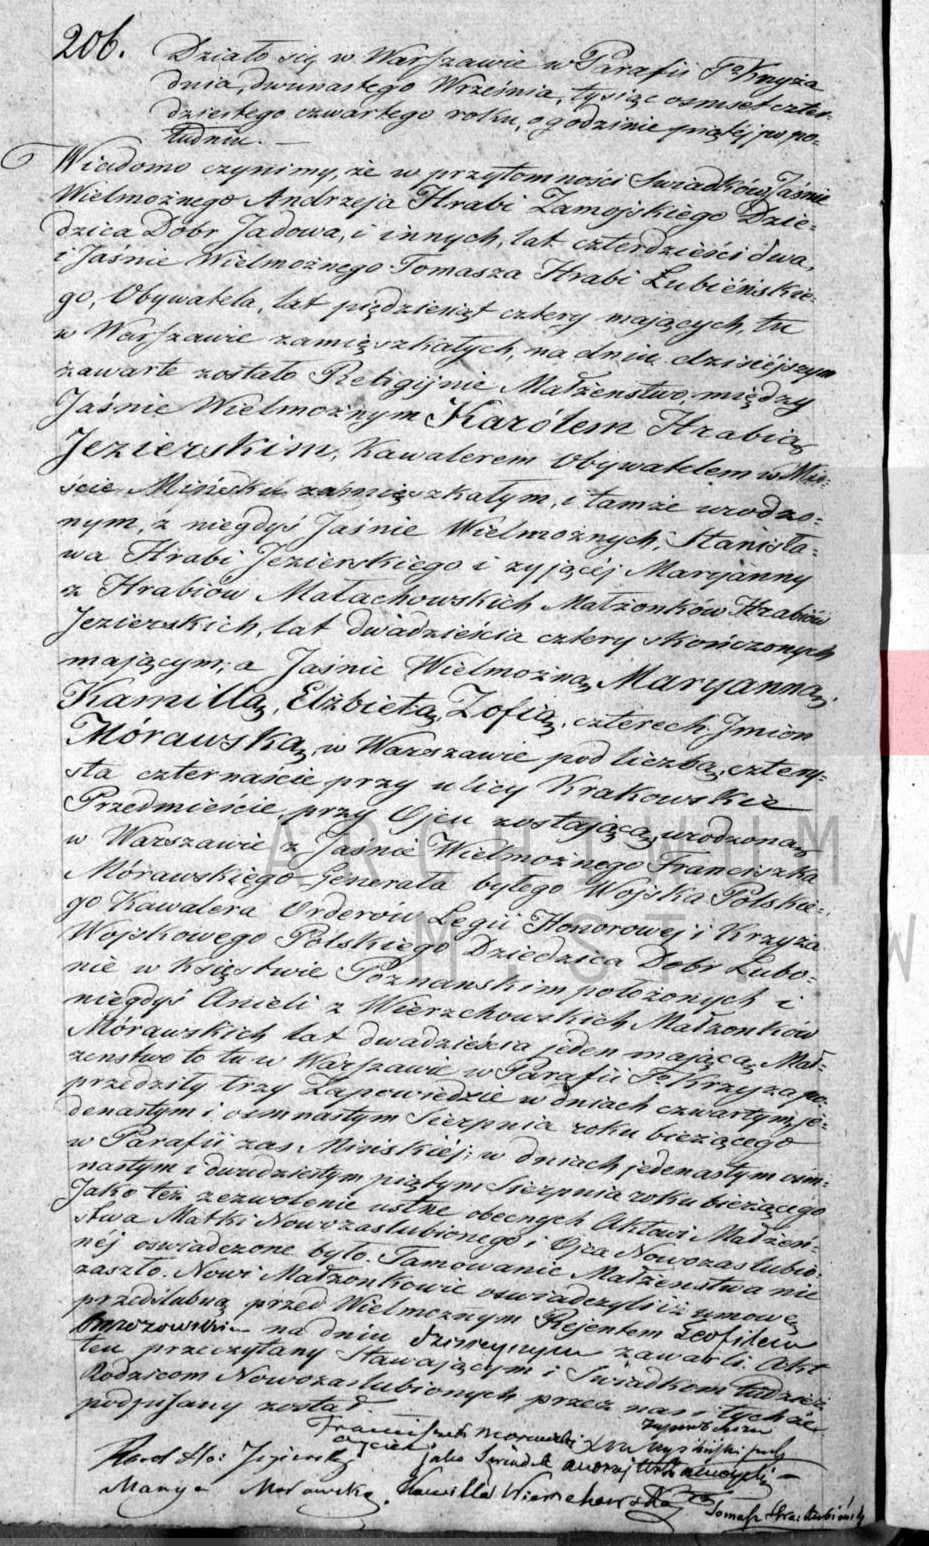 206.
Działo się w Warszawie w Parafii Sº Krzyża
dnia dwunastego Września, tysiąc osmset czter-
dziestego czwartego roku, o godzinie piątéj po po-
łudniu. —
Wiadomo czynimy, że w przytomności Swiadków Jaśnie
Wielmożnego Andrzeja Hrabi Zamojskiego Dzie-
dzica Dóbr Jadowa, i innych, lat czterdzieści dwa,
i Jaśnie Wielmożnego Tomasza Hrabi Łubieńskie-
go, Obywatela, lat pięćdziesiąt cztery mających, tu
w Warszawie zamięszkałych, na dniu dzisiéjszym
zawarte zostało Religijnie Małżeństwo, między
Jaśnie Wielmożnym Karólem Hrabią
Jezierskim, Kawalerem Obywatelem w Mie-
ście Mińsku zamięszkałym, i tamże urodzo-
nym, z niegdyś Jaśnie Wielmożnych, Stanisła-
wa Hrabi Jezierskiego i żyjącéj Maryanny
z Hrabiów Małachowskich Małżonków Hrabiów
Jezierskich, lat dwadzieścia cztery skończonych
mającym; a Jaśnie Wielmożną Maryanną,
Kamillą, Elżbietą, Zofią, czterech Jmion
Mórawską, w Warszawie pod liczbą, czterý-
sta czternaście przy ulicy Krakowskie
Przedmieście, przy Ojcu zostającą, urodzoną
w Warszawie z Jaśnie Wielmożnego Franciszka
Mórawskiego Jenerała byłego Wojska Polskie-
go Kawalera Orderów Legii Honorowej i Krzyża
Wojskowego Polskiego Dziedzica Dóbr Lubo-
nie w Księstwie Poznanskim położonych i
niegdyś Anieli z Wierzchowskich Małżonków
Mórawskich lat dwadzieścia jeden mającą. Mał-
żenstwo to tu w Warszawie w Parafii Sº Krzyża po-
przedziły trzy Zapowiedzie w dniach czwartym, je-
denastym i osmnastym Sierpnia roku bieżącego
w Parafii zas Mińskiéj; w dniach jedenastym osm-
nastym i dwudziestym piątym Sierpnia roku bieżącego
Jako też zezwolenie ustne obecnych Aktowi Małżeń-
stwa Matki Nowozaslubionego i Ojca Nowozaslubio-
néj oswiadczone było. Tamowanie Małżenstwa nie
zaszło. Nowi Małżonkowie oświadczyli iż umowę
przedślubną przed Wielmożnym Rejentem Teofilem
na dniu dzisiejszym zawarli. Akt
ten przeczytany Stawającym i Świadkom tudzież
Rodzicom Nowozaslubionych przez nas i tychże
podpisany został
Franciszek Morawski
ojciec jako Swiadek Andrzej Hr Zamoyski
Karol Hr: Jezierski
Marya Morawska. Kamilla Wierzchowska Tomasz Hra: Łubieński
ARCHIWUM
M.ST.W